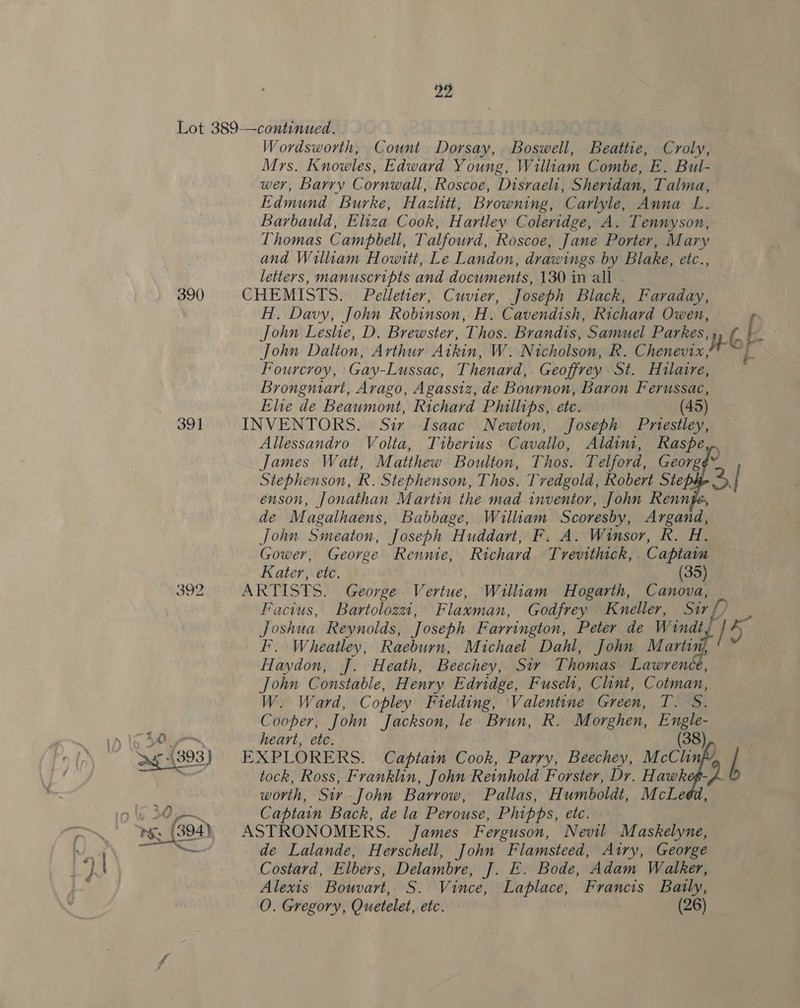 22
Lot 389—continued.
Wordsworth, Count Dorsay, Boswell, Beattie, Croly,
Mrs. Knowles, Edward Young, William Combe, E. Bul-
wer, Barry Cornwall, Roscoe, Disraeli, Sheridan, Talma,
Edmund Burke, Hazlitt, Browning, Carlyle, Anna L.
Barbauld, Eliza Cook, Hartley Coleridge, A. Tennyson,
Thomas Campbell, Talfourd, Roscoe, Jane Porter, Mary
and William Howitt, Le Landon, drawings by Blake, etc.,
letters, manuscripts and documents, 130 in all
390 CHEMISTS. Pelletier, Cuvier, Joseph Black, Faraday,
H. Davy, John Robinson, H. Cavendish, Richard Owen,
John Leslie, D. Brewster, Thos. Brandis, Samuel Parkes,
John Dalton, Arthur Aikin, W. Nicholson, R. Chenevix,
Fourcroy, Gay-Lussac, Thenard, Geoffrey St. Hilaire,
Brongniart, Arago, Agassiz, de Bournon, Baron Ferussac,
Elie de Beaumont, Richard Phillips, etc. (45)
391 INVENTORS. Sir Isaac Newton, Joseph Priestley,
Allessandro Volta, Tiberius Cavallo, Aldini, Raspe,
James Watt, Matthew Boulton, Thos. Telford, George
Stephenson, R. Stephenson, Thos. Tredgold, Robert Steph-
enson, Jonathan Martin the mad inventor, John Rennie,
de Magalhaens, Babbage, William Scoresby, Argand,
John Smeaton, Joseph Huddart, F. A. Winsor, R. H.
Gower, George Rennie, Richard Trevithick, Captain
Kater, etc. (35)
392 ARTISTS. George Vertue, William Hogarth, Canova,
Facius, Bartolozzi, Flaxman, Godfrey Kneller, Sir
Joshua Reynolds, Joseph Farrington, Peter de Windt,
F. Wheatley, Raeburn, Michael Dahl, John Martin,
Haydon, J. Heath, Beechey, Sir Thomas Lawrence,
John Constable, Henry Edridge, Fuseli, Clint, Cotman,
W. Ward, Copley Fielding, Valentine Green, T. S.
Cooper, John Jackson, le Brun, R. Morghen, Engle-
heart, etc. (38)
393 EXPLORERS. Captain Cook, Parry, Beechey, McClin-
tock, Ross, Franklin, John Reinhold Forster, Dr. Hawkes-
worth, Sir John Barrow, Pallas, Humboldt, McLeod,
Captain Back, de la Perouse, Phipps, etc.
394 ASTRONOMERS. James Ferguson, Nevil Maskelyne,
de Lalande, Herschell, John Flamsteed, Airy, George
Costard, Elbers, Delambre, J. E. Bode, Adam Walker,
Alexis Bouvart, S. Vince, Laplace, Francis Baily,
O. Gregory, Quetelet, etc. (26)